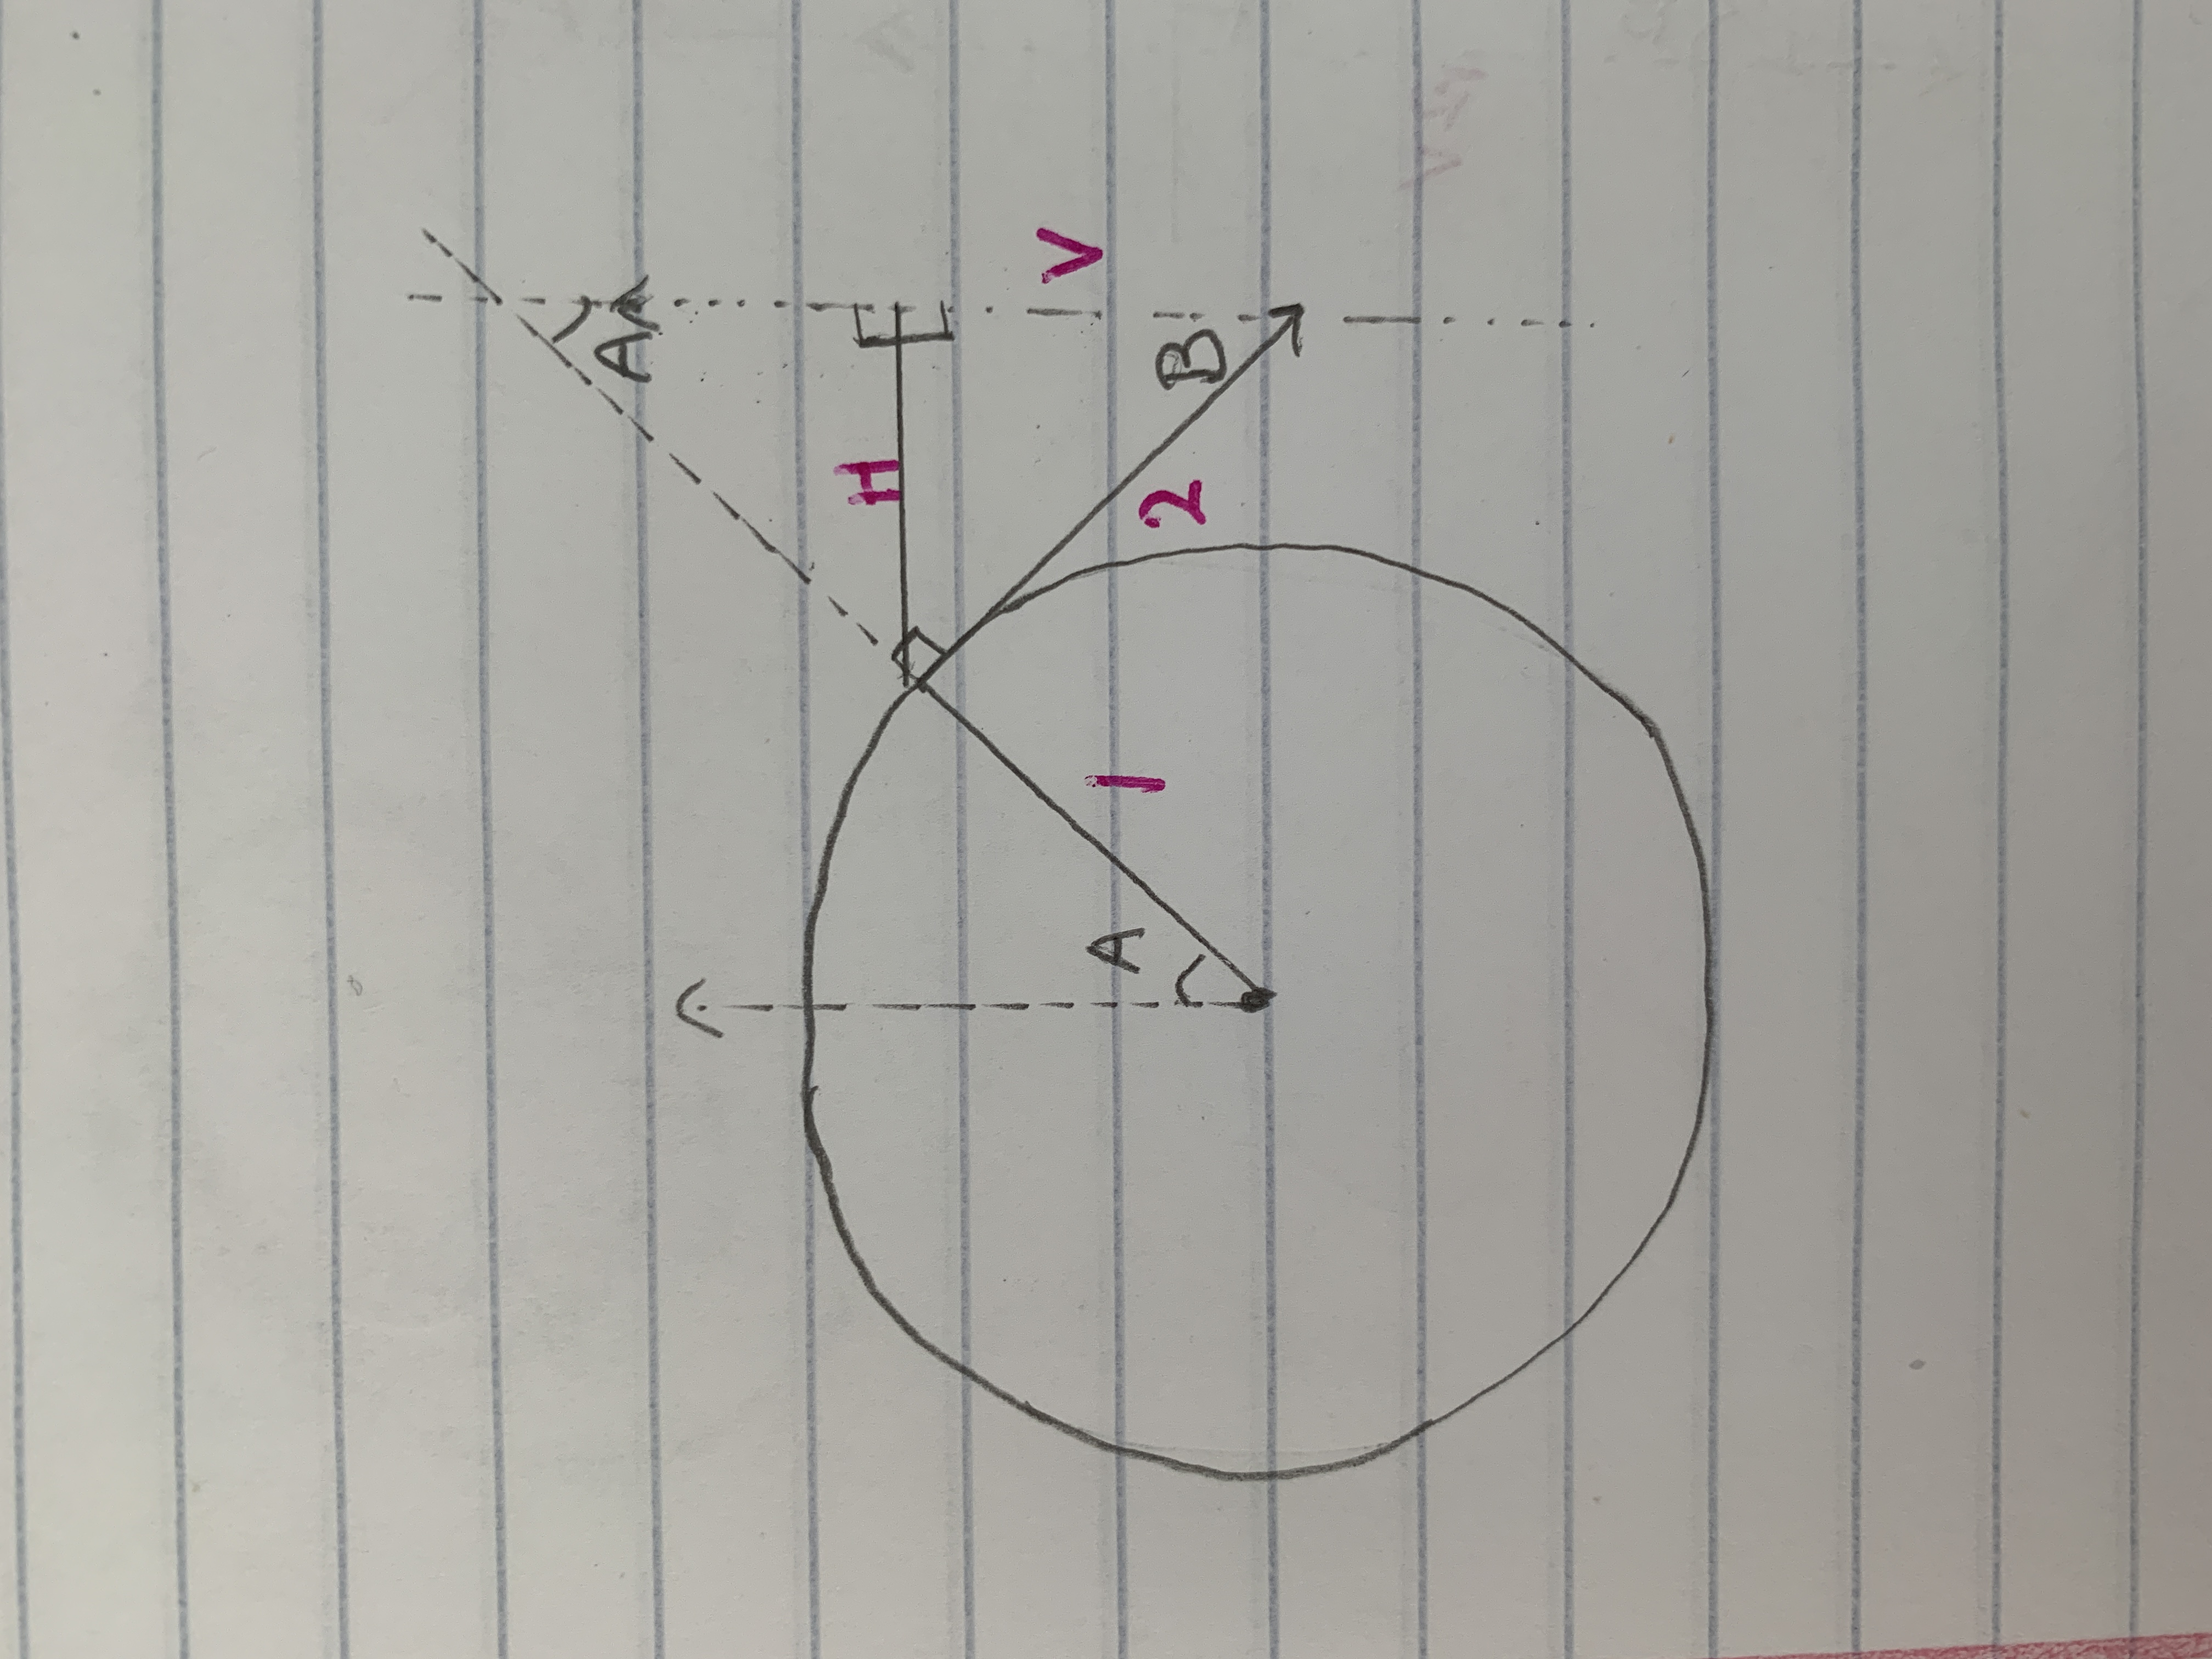 A
H
V
A
1
2
B